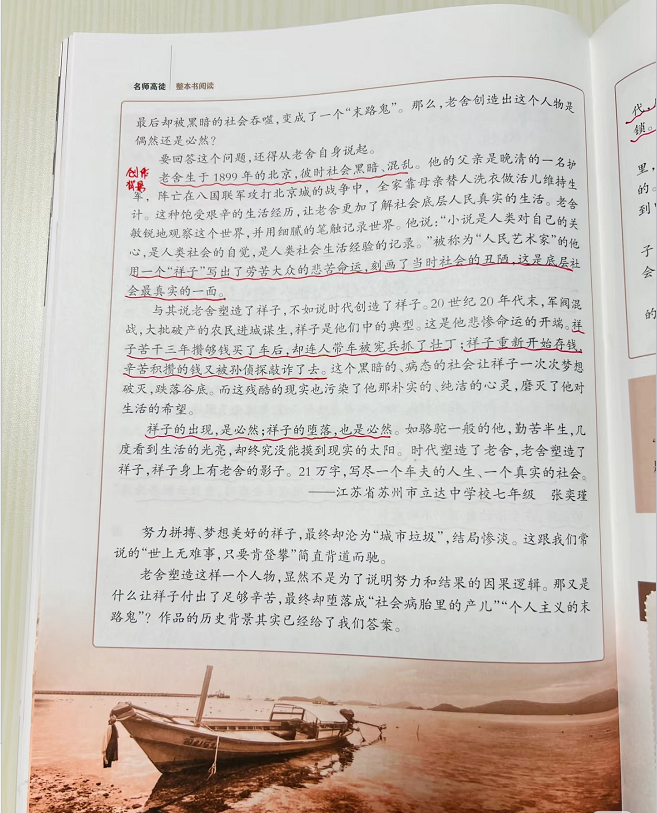 名师高徒 整本书阅读
最后却被黑暗的社会吞噬,变成了一个“末路鬼”。那么,老舍创造出这个人物是
偶然还是必然?
要回答这个问题,还得从老舍自身说起。
创作
背景
老舍生于1899年的北京,彼时社会黑暗、混乱。他的父亲是晚清的一名护
军,阵亡在八国联军攻打北京城的战争中,全家靠母亲替人洗衣做活儿维持生
计。这种饱受艰辛的生活经历,让老舍更加了解社会底层人民真实的生活。老舍
敏锐地观察这个世界,并用细腻的笔触记录世界。他说:“小说是人类对自己的关
心,是人类社会的自觉,是人类社会生活经验的记录。”被称为“人民艺术家”的他
用一个“祥子”写出了劳苦大众的悲苦命运,刻画了当时社会的丑陋,这是底层社
会最真实的一面。
与其说老舍塑造了祥子,不如说时代创造了祥子。20世纪20年代末,军阀混
战,大批破产的农民进城谋生,祥子是他们中的典型。这是他悲惨命运的开端。祥
子苦干三年攒够钱买了车后,却连人带车被宪兵抓了壮丁;祥子重新开始存钱,
辛苦积攒的钱又被孙侦探敲诈了去。这个黑暗的、病态的社会让祥子一次次梦想
破灭,跌落谷底。而这残酷的现实也污染了他那朴实的、纯洁的心灵,磨灭了他对
生活的希望。
祥子的出现,是必然;祥子的堕落,也是必然。如骆驼一般的他,勤苦半生,几
度看到生活的光亮,却终究没能摸到现实的太阳。时代塑造了老舍,老舍塑造了
祥子,祥子身上有老舍的影子。21万字,写尽一个车夫的人生、一个真实的社会。
——江苏省苏州市立达中学校七年级 张奕瑾
努力拼搏、梦想美好的祥子,最终却沦为“城市垃圾”,结局惨淡。这跟我们常
说的“世上无难事,只要肯登攀”简直背道而驰。
老舍塑造这样一个人物,显然不是为了说明努力和结果的因果逻辑。那又是
什么让祥子付出了足够辛苦,最终却堕落成“社会病胎里的产儿”“个人主义的末
路鬼”?作品的历史背景其实已经给了我们答案。
代,
锁。
里,
的。
到
子
会
的